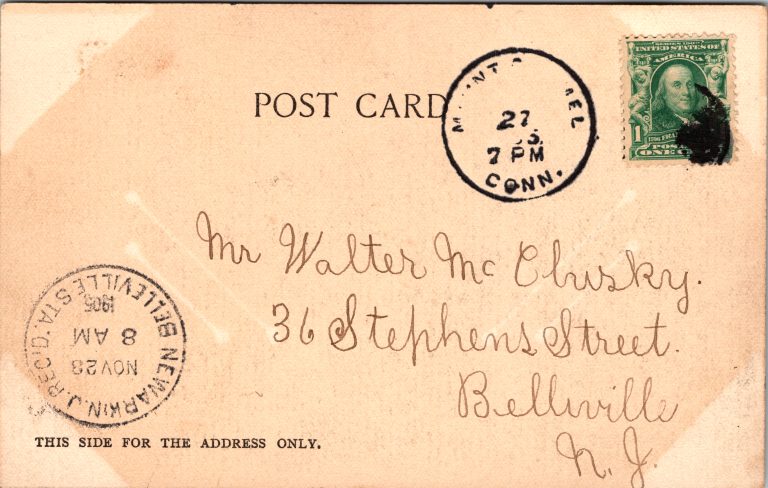 POST CARD
27
7 PM
CONN.
SERIES 1902
UNITED STATES OF
AMERICA
1
POSTAGE
ONE
Mr Walter Mc Clusky.
36 Stephens Street.
Belleville
N. J.
NEWARK, N.J. REC'D.
BELLEVILLE STA.
NOV 28
8 AM
1905
THIS SIDE FOR THE ADDRESS ONLY.